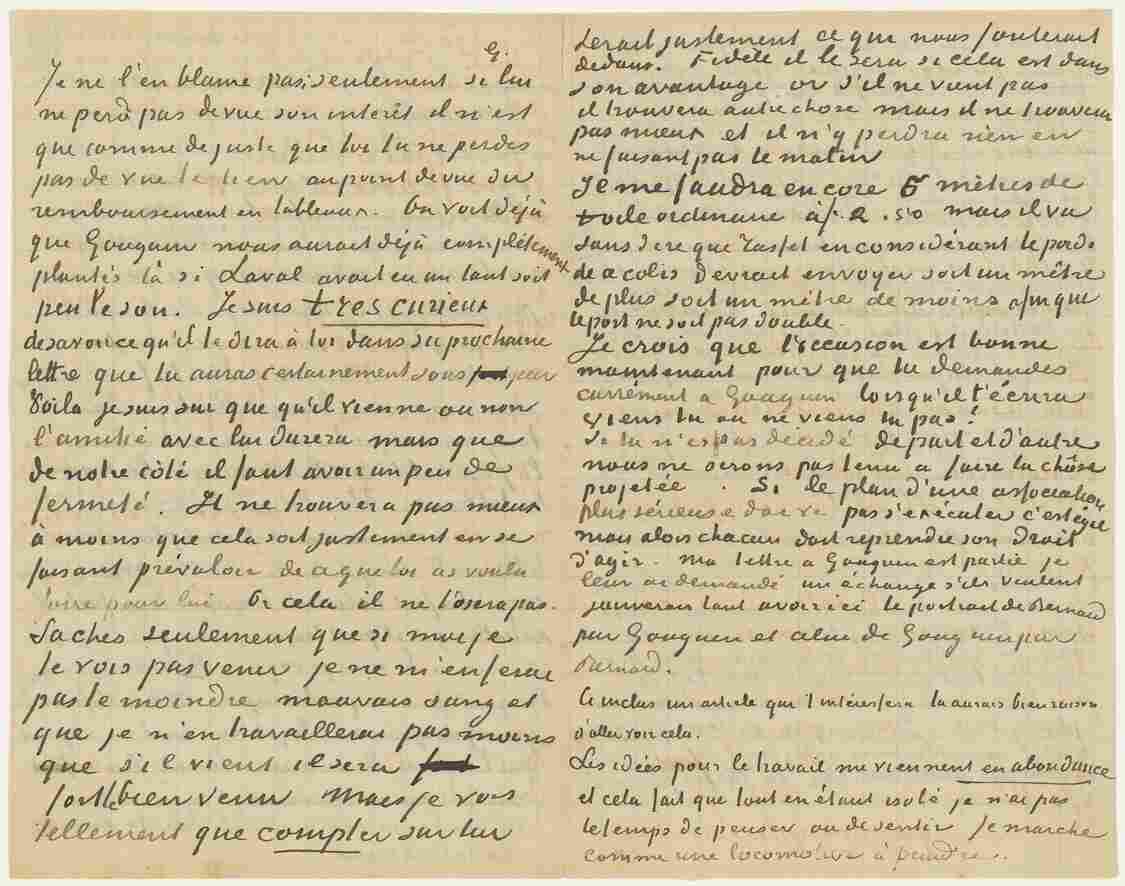 G.
Je ne l'en blame pas, seulement si lui
ne perd pas de vue son interêt il n'est
que comme de juste que toi tu ne perdes
pas de vue le tien au point de vue du
remboursement en tableaux. On voit déjà
que Gauguin nous aurait déjà complètement
plantés là si Laval avait eu un tant soit
peu le son. Je suis très curieux
de savoir ce qu'il te dira à toi dans sa prochaine
lettre que tu auras certainement sous peu
Voila je suis sur que qu'il vienne ou non
l'amitié avec lui durera mais que
de notre côté il faut avoir un peu de
fermeté. Il ne trouvera pas mieux
à moins que cela soit justement en se
faisant prévaloir de ce que toi as voulu
faire pour lui. Or cela il ne l'osera pas.
Saches seulement que si moi je
le vois pas venir je ne m'en ferai
pas le moindre mauvais sang et
que je n'en travaillerai pas moins
que s'il vient il sera
fort bien venu mais je vois
tellement que compter sur lui
serait justement ce que nous fouterait
dedans. Fidèle il le sera si cela est dans
son avantage or s'il ne vient pas
il trouvera autre chose mais il ne trouvera
pas mieux et il n'y perdra rien en
ne faisant pas le malin
Je me faudra encore 5 mètres de
toile ordinaire à f. 2.50 mais il va
sans dire que Tasset en considérant le poids
de ce colis devrait envoyer soit un mètre
de plus soit un mètre de moins afin que
le port ne soit pas double.
Je crois que l'occasion est bonne
maintenant pour que tu demandes
carrément a Gauguin lorsqu'il t'écrira
viens tu ou ne viens tu pas!
Si tu n'es pas décidé de part et d'autre
nous ne serons pas tenu a faire la chôse
projetée. Si le plan d'une association
plus sérieuse doive pas s'exécuter c'est égal
mais alors chacun doit reprendre son droit
d'agir. ma lettre a Gauguin est partie je
leur ai demandé un échange s'ils veulent
j'aimerais tant avoir ici le portrait de Bernard
par Gauguin et celui de Gauguin par
Bernard.
Ci inclus un article qui t'intéressera tu aurais bien raison
d'aller voir cela.
Les idées pour le travail me viennent en abondance
et cela fait que tout en étant isolé je n'ai pas
le temps de penser ou de sentir Je marche
comme une locomotive à peindre.